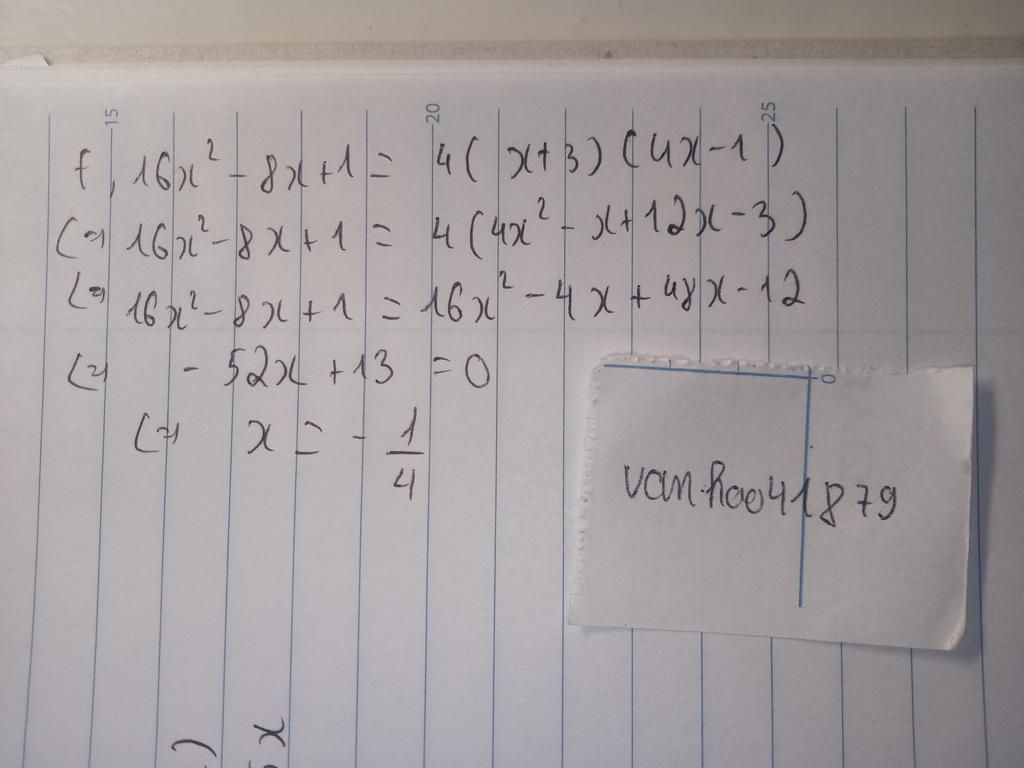 15 20 25
f, 16x² - 8x + 1 = 4( x+3) (4x-1)
(=) 16x² - 8x + 1 = 4(4x² - x + 12x - 3)
(=) 16x² - 8x + 1 = 16x² - 4x + 48x - 12
(=) - 52x + 13 = 0
(=) x = - 1/4
0
van.hao041879
) x